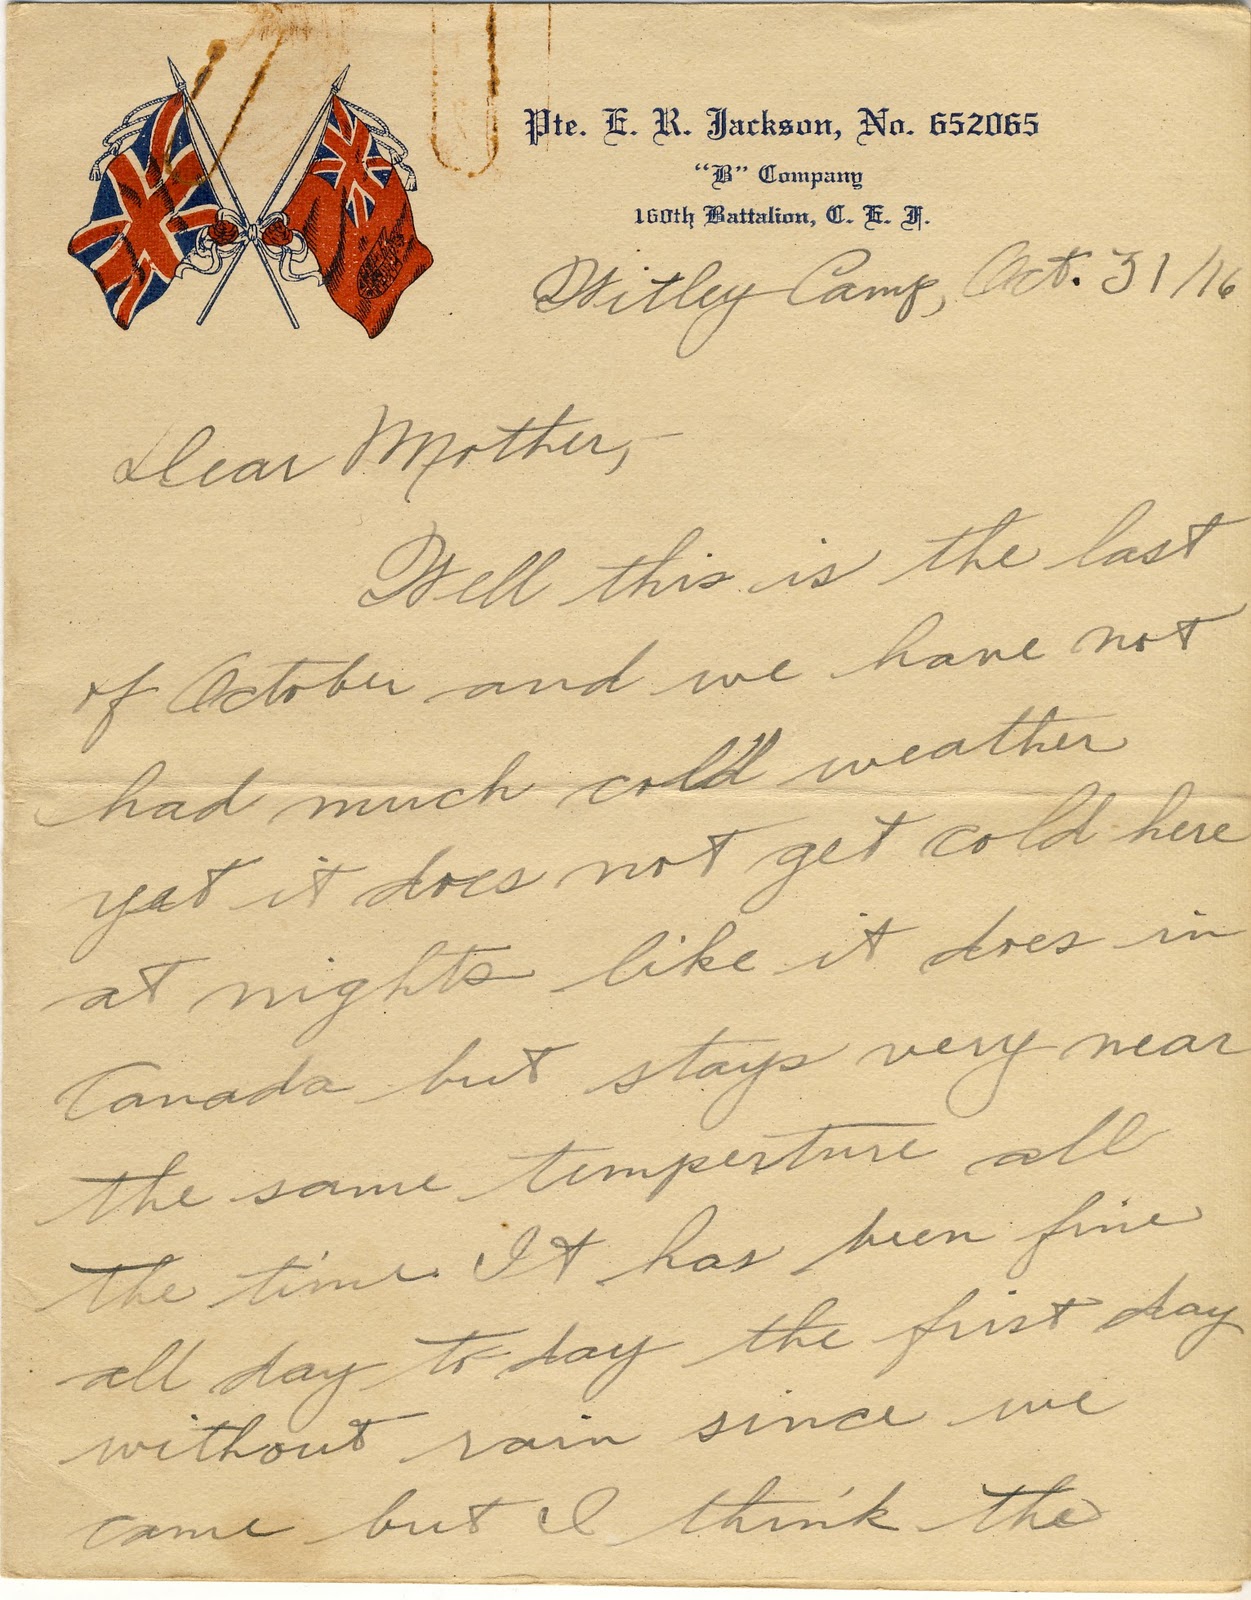 Pte. E. R. Jackson, No. 652065
"B" Company
160th Battalion, C. E. F.
Witley Camp, Oct. 31/16
Dear Mother,-
Well this is the last
of October and we have not
had much cold weather
yet it does not get cold here
at nights like it does in
Canada but stays very near
the same temperture all
the time. It has been fine
all day to-day the first day
without rain since we
came but I think the